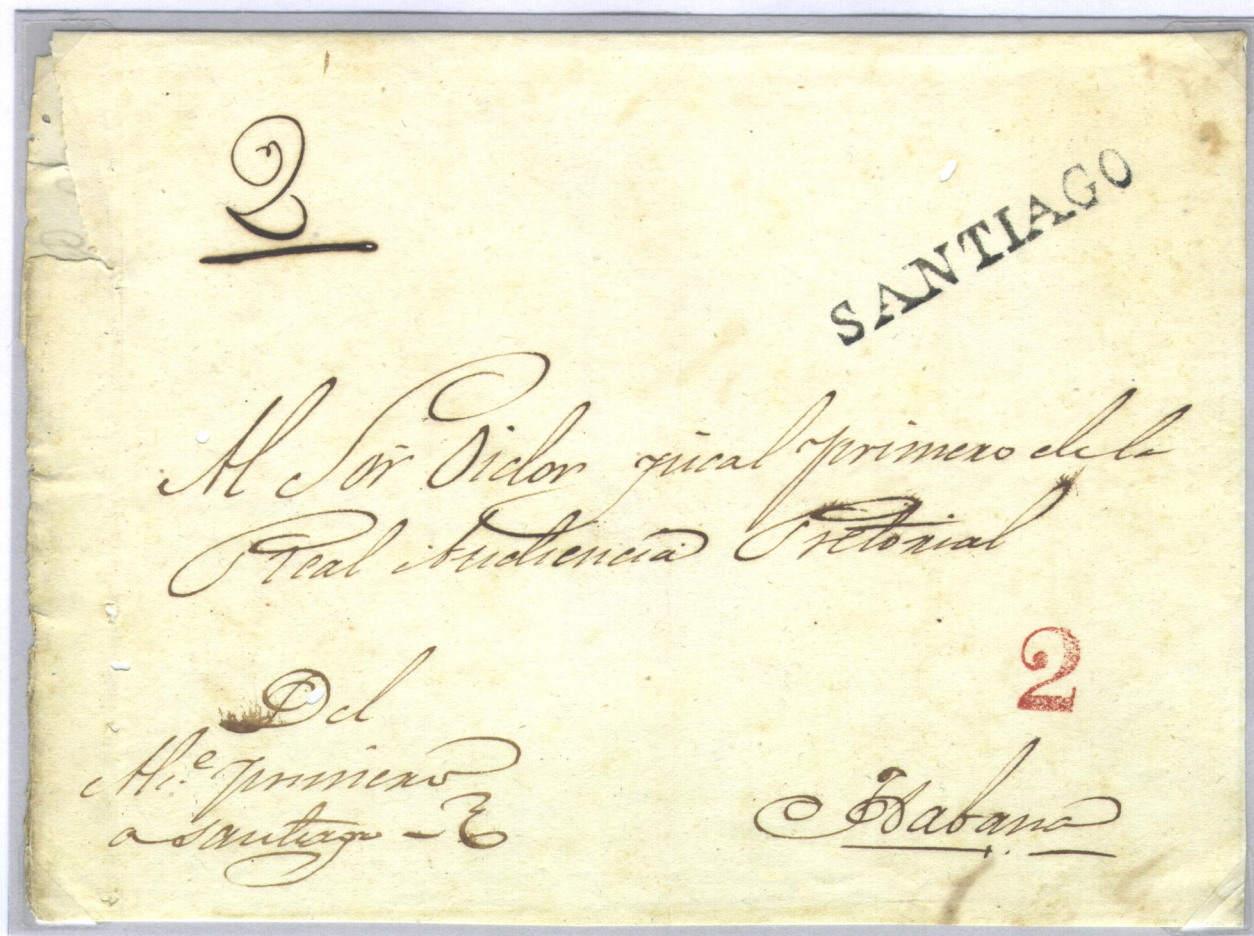 2
SANTIAGO
Al Sor Oidor fiscal primero de la
Real Audiencia Pretorial
2
Del
Alc.e primero
Habana